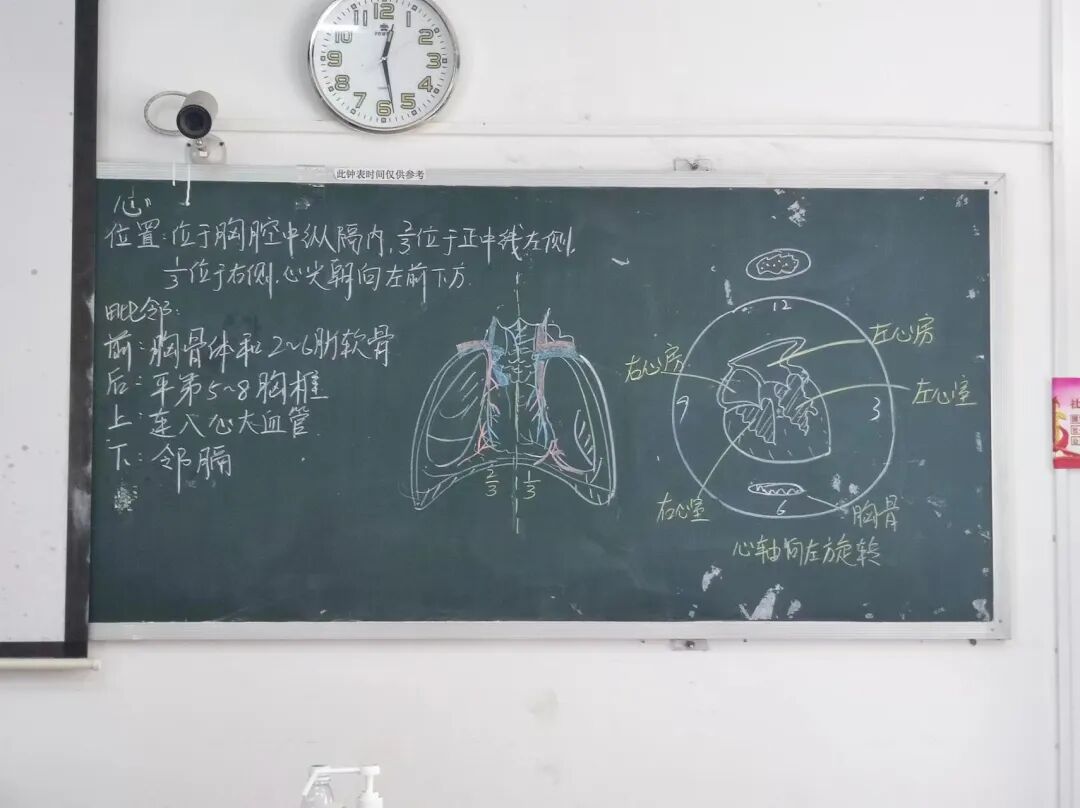 12
1
2
3
4
5
6
7
8
9
10
11
此钟表时间仅供参考
心
位置:位于胸腔中纵隔内,2/3位于正中线左侧,
1/3位于右侧,心尖朝向左前下方.
毗邻:
前:胸骨体和2~6肋软骨
后:平第5~8胸椎
上:连入心大血管
下:邻膈
2/3 1/3
12
左心房
右心房
左心室
9 3
右心室
6
胸骨
心轴向左旋转
社